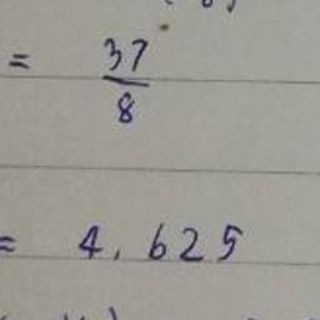 = 37/8
= 4.625